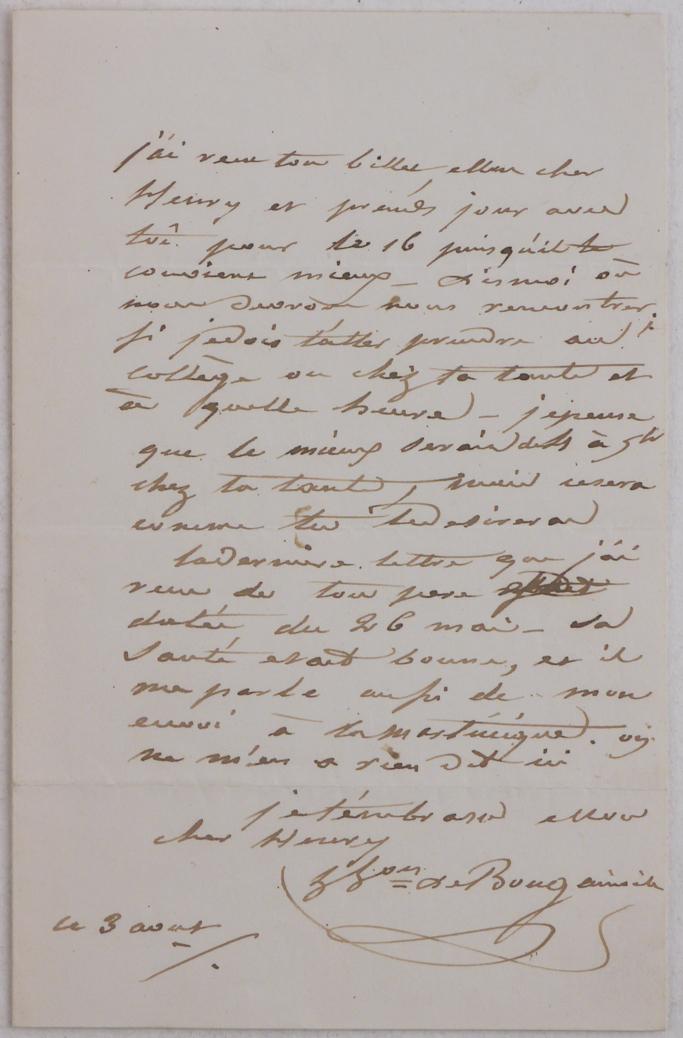 j'ai recu ton billet mon cher
Henry et prends jour avec
toi pour le 16 puisqu'il te
convient mieux _ dis moi où
nous devrons nous rencontrer.
si je dois t'aller prendre au
collège ou chez ta tante et
à quelle heure _ je pense
que le mieux serait à 5h
chez ta tante, mais ce sera
comme tu le desireras
la derniere lettre que j'ai
recue de ton pere
datée du 26 mai _ sa
santé etait bonne, et il
me parle aussi de mon
envoi à la martinique. on
ne m'en a rien dit ici
je t'embrasse mon
cher Henry
de Bougainville
ce 3 aout